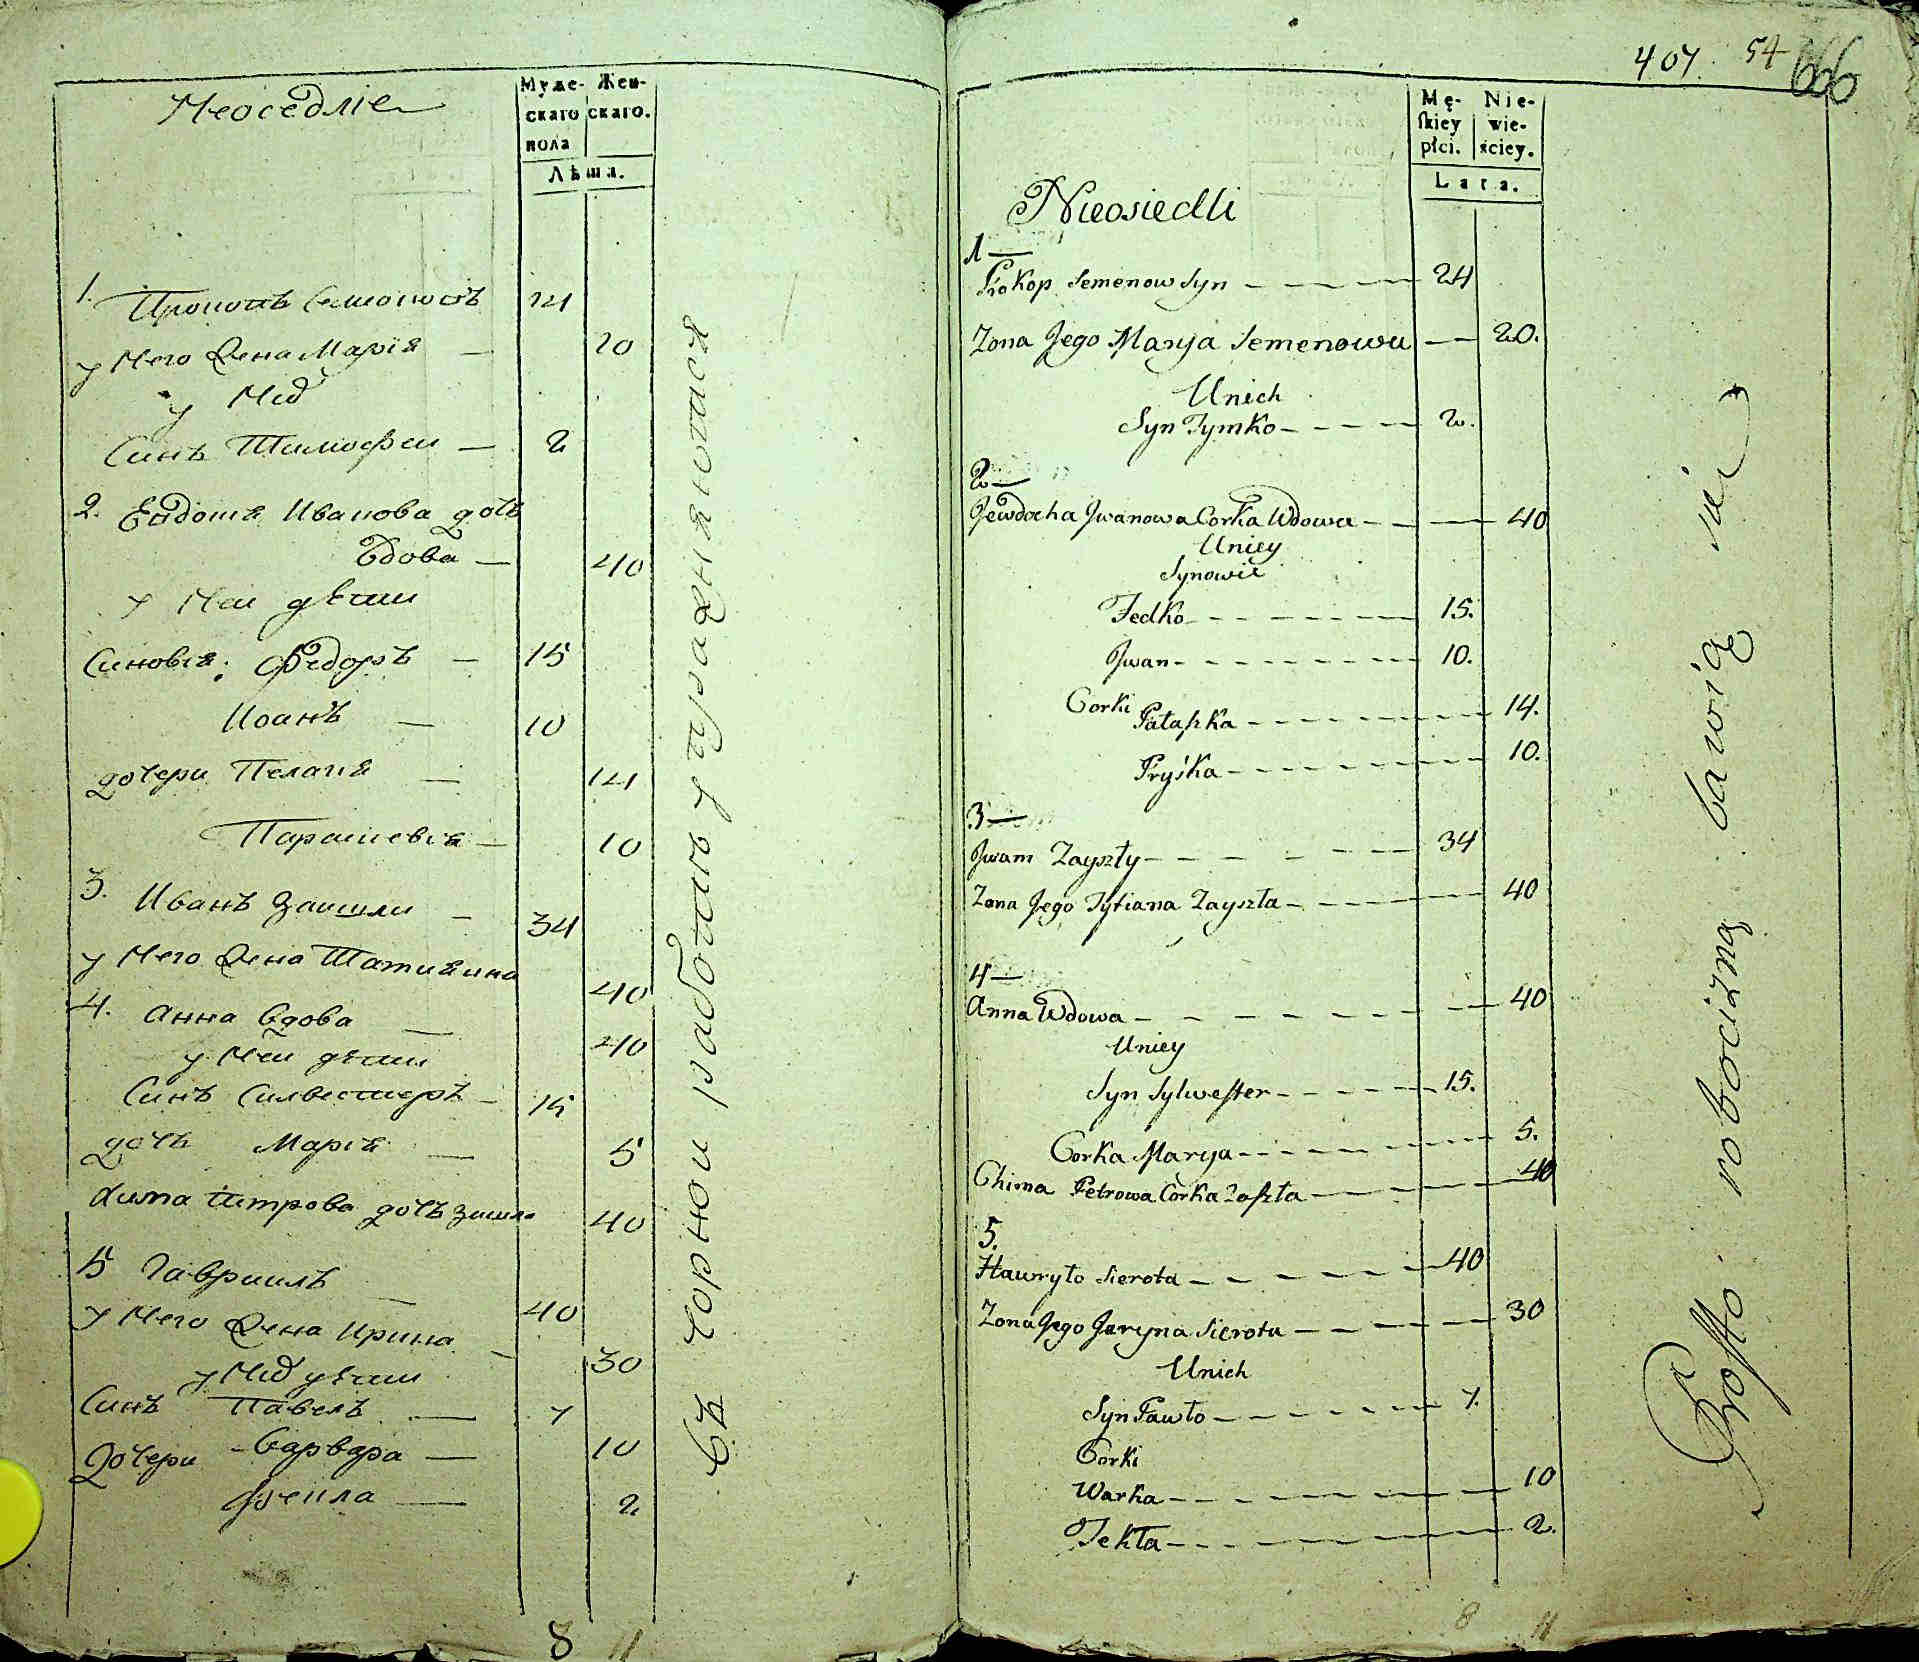 Неоседліе
Муже-
скаго
пола
Жен-
скаго.
Лѣта.
1. Прокопъ Семеновъ 24
у Него Жена Марія — 20
у Нид
Синъ Тимофеи — 2
2. Евдокія Иванова дочь
Вдова — 40
у Неи дѣти
Синовія: Федоръ — 15
Иоанъ — 10
дочери Пелагія — 14
Параскевія — 10
3. Иванъ Заишли — 34
у Него Жена Татияна 40
4. Анна Вдова — 40
у Неи дѣти
Синъ Силвестеръ — 15
дочь Марія — 5
Хима Петрова дочъ зашла 40
5 Гавриилъ — 40
у Него Жена Ирина — 30
у Нид дѣти
Синъ Павелъ — 7
Дочери Варвара — 10
Фекла — 2
въ чорной работѣ упражняются
8 11
407. 54 666
Mę-
skiey
płci.
Nie-
wie-
ściey.
Lata.
Nieosiedli
1 —
Prokop Semenow Syn — — — — 24
Zona Jego Marya Semenowa — — 20.
Unich
Syn Tymko — — — — 2.
2 —
Jewdocha Jwanowa Corka Wdowa — — — 40
Uniey
Synowie
Fedko — — — — — 15.
Jwan — — — — — 10.
Corki Pałaszka — — — — — 14.
Pryśka — — — — — 10.
3 —
Jwam Zayszły — — — — — 34
Zona Jego Tytiana Zayszła — — — — — 40
4 —
Anna Wdowa — — — — — 40
Uniey
Syn Sylwester — — — — 15.
Corka Marya — — — — — 5.
Chima Petrowa Corka Zaszła — — — — 40
5.
Hawryło Sierota — — — — 40
Zona Jego Jaryna Sierota — — — — 30
Unich
Syn Pawło — — — — 7.
Corki
Warka — — — — — 10
Tekła — — — — — 2.
Prosto robocizną bawią się
8 11